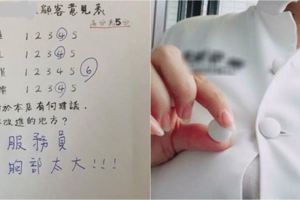 顧客意見表
滿分為5分
1 2 3 4 5
1 2 3 4 5
1 2 3 4 5 6
1 2 3 4 5
於本店有何建議
改進的地方?
服務員
胸部太大!!!